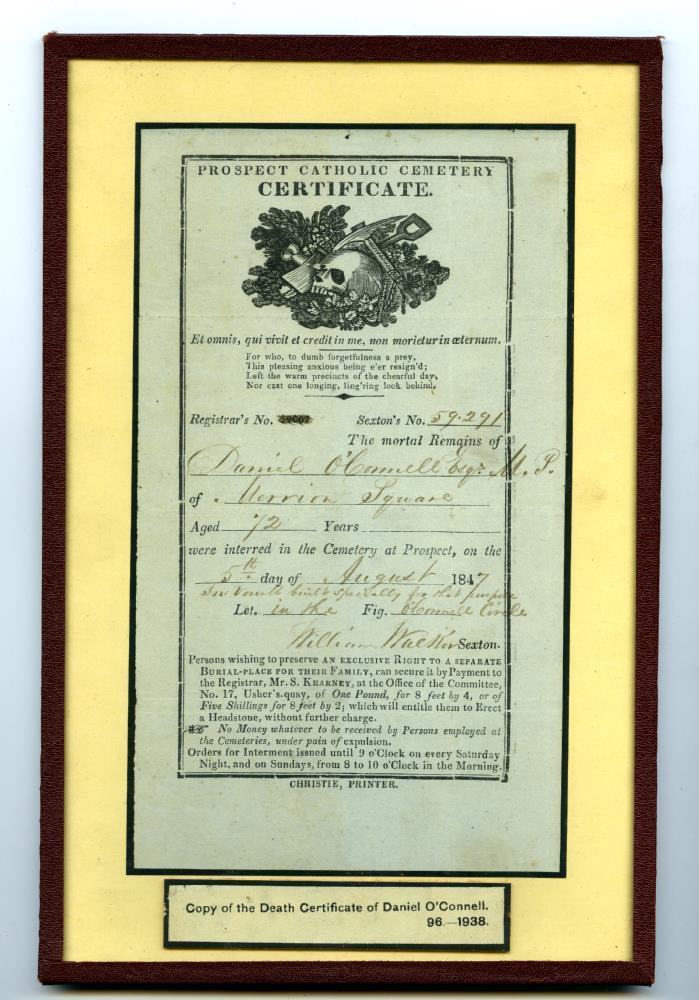 PROSPECT CATHOLIC CEMETERY
CERTIFICATE.
Et omnis, qui vivit et credit in me, non morietur in æternum.
For who, to dumb forgetfulness a prey,
This pleasing anxious being e'er resign'd;
Left the warm precincts of the chearful day,
Nor cast one longing, ling'ring look behind.
Registrar's No. Sexton's No. 59.291
The mortal Remains of
Daniel O'Connell Esqr. M.P.
of Merrion Square
Aged 72 Years
were interred in the Cemetery at Prospect, on the
5th day of August 1847
In vault built specially for that purpose
Let. in the Fig. O'Connell Circle
William Walker Sexton.
Persons wishing to preserve AN EXCLUSIVE RIGHT TO A SEPARATE
BURIAL-PLACE FOR THEIR FAMILY, can secure it by Payment to
the Registrar, Mr. S. KEARNEY, at the Office of the Committee,
No. 17, Usher's.quay, of One Pound, for 8 feet by 4, or of
Five Shillings for 8 feet by 2; which will entitle them to Erect
a Headstone, without further charge.
No Money whatever to be received by Persons employed at
the Cemeteries, under pain of expulsion.
Orders for Interment issued until 9 o'Clock on every Saturday
Night, and on Sundays, from 8 to 10 o'Clock in the Morning.
CHRISTIE, PRINTER.
Copy of the Death Certificate of Daniel O'Connell.
96.—1938.